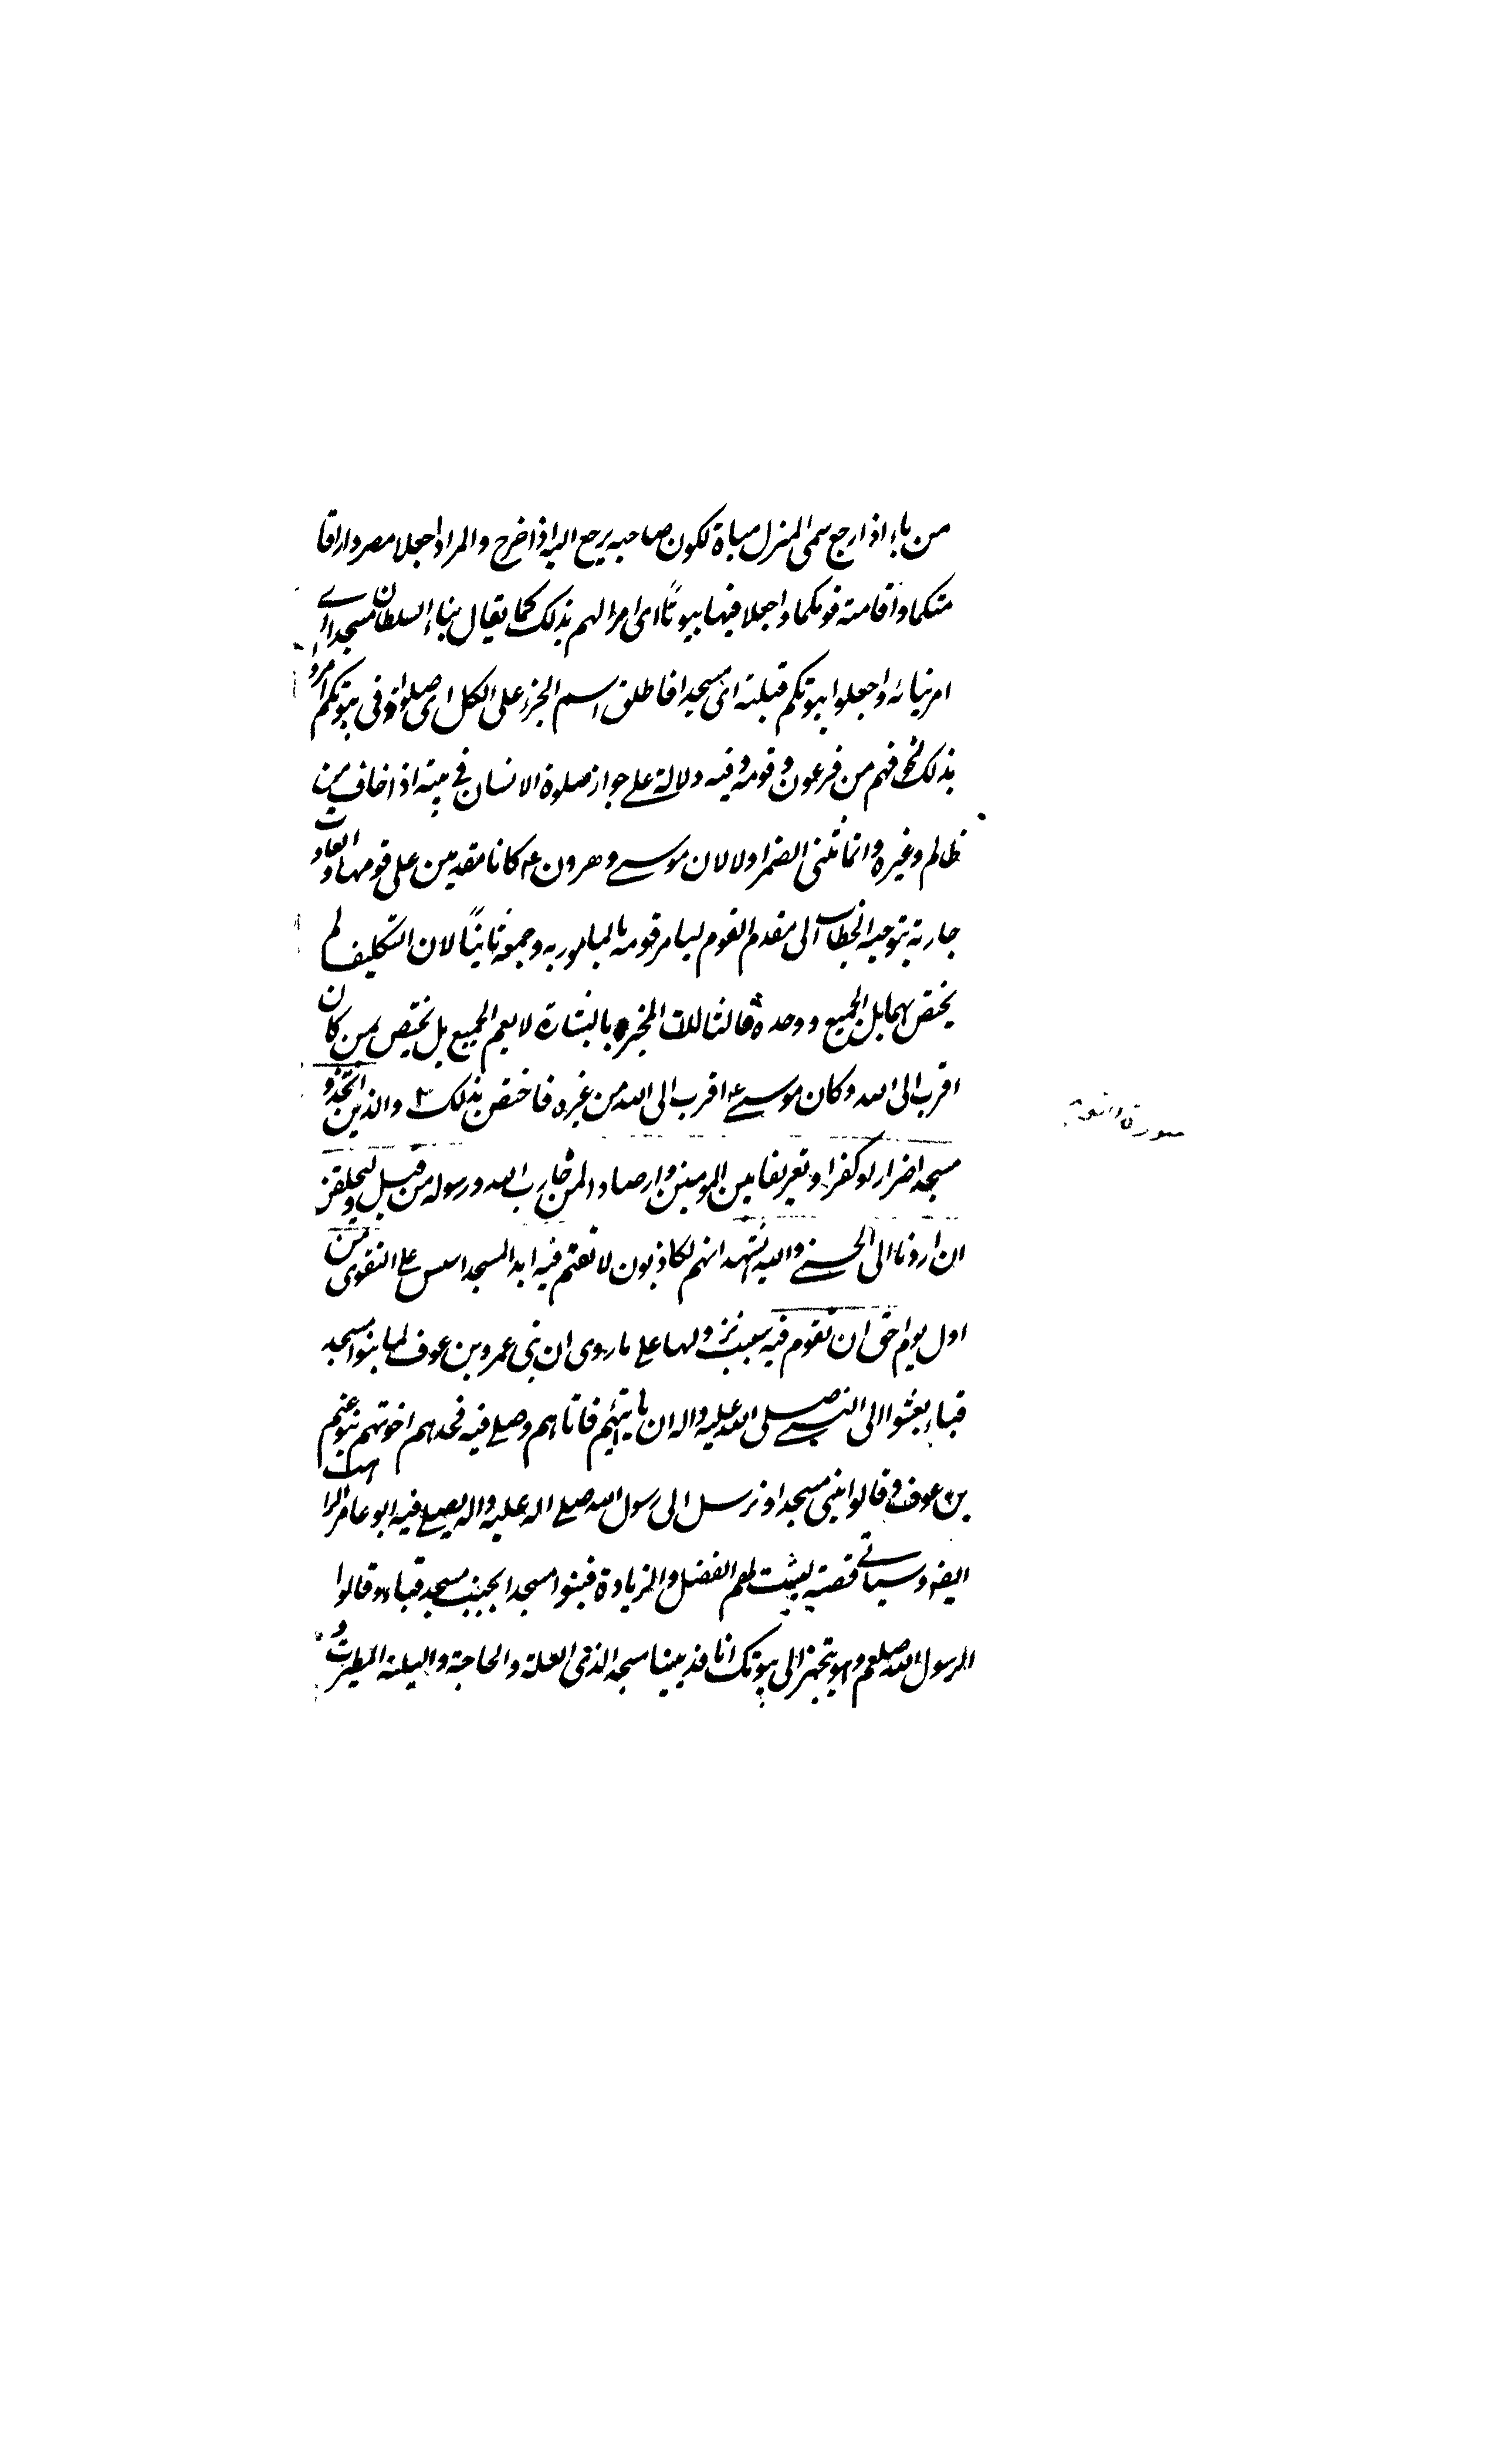 من باء اذا رجع سمى المنزل مباة لكون صاحبه يرجع اليه اذا خرج والمراد اجعلا مصر دار اقا
متكما واقامة قومكما واجعلا فيها بيوتاً اى امرا لهم بذلك كما يقال بناء السلطان مسجدا اے
امر بنيائه واجعلوا بيوتكم قبلة اى مسجدا فاطلق اسم الجزء على الكل اى صلوا فى بيوتكم امروا
بذلك لخوفهم من فرعون وقومه وفيه دلالة على جواز صلوة الانسان فى بيته اذا خاف من
ظالم وغيره وانما ثنى الضمر اولا لان موسى وهرون ع كانا مقدمين على قومهما والعادت
جارية بتوجيه الخطاب الى مقدم القوم ليامر قومه بالمامور به وجمع ثانياً لان التكليف لم
يختص بهما بل الجميع ووحده ثالثا لان المخبر بالبشارة لا يعم الجميع بل يختص بمن كان
اقرب الى الله وكان موسى ع اقرب الى الله من غيره فاختص بذلك ٣ والذين اتخذوا
مسجدا ضرارا وكفرا وتفريقا بين المومنين وارصادا لمن حارب الله ورسوله من قبل وليحلفن
ان اردنا الى الحسنى والله يشهد انهم لكاذبون لا تقم فيه ابدا لمسجد اسس على التقوى من
اول يوم احق ان تقوم فيه سبب نزولها على ما روى ان بنى عمرو بن عوف لما بنوا مسجد
قباء بعثوا الى النبى صلى الله عليه واله ان ياتيهم فاتاهم وصلى فيه فحسدهم اخوتهم بنو غنم
بن عوف وقالوا نبنى مسجدا ونرسل الى رسول الله صلى اله عليه واله يصلى فيه ابو عامر الراهب
ايضه وسياتى قصته ليثبت لهم الفضل والزيادة فبنوا مسجدا بجنب مسجد قباء وقالوا
لرسول الله صلعم وهو يتجهز الى تبوك انا قد بنينا مسجدا لذى العلة والحاجة والليلة المطيرة و
سورة التوبة